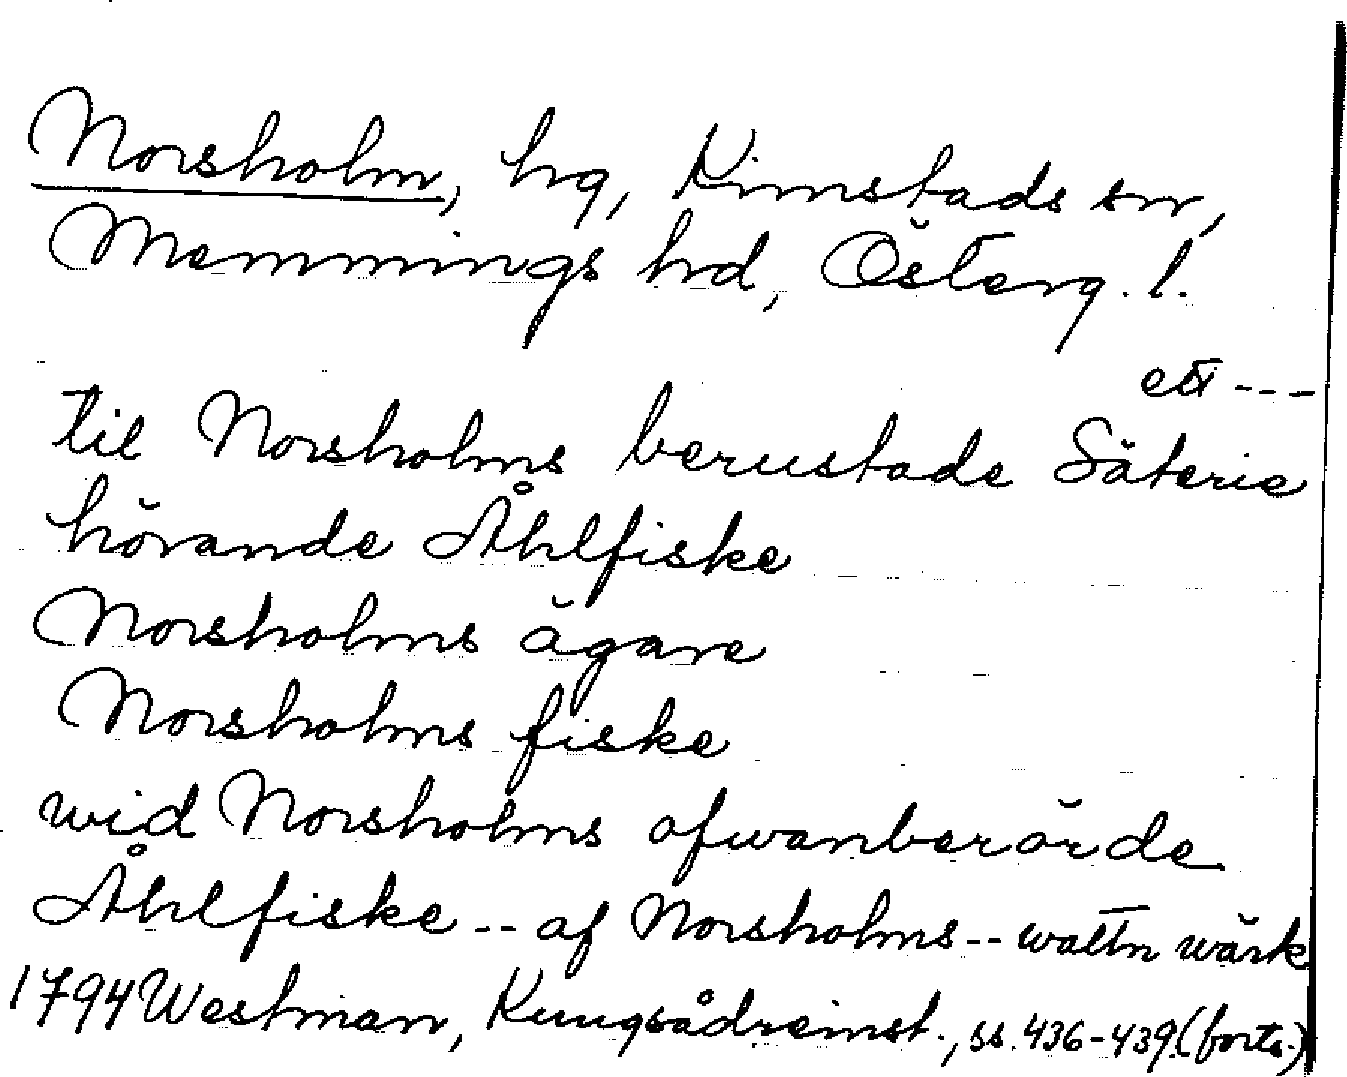 Norsholm, hg, Kimstads sn,
Memmings hd, Österg. l.
ett ---
til Norsholms berustade Säterie
hörande Åhlfiske
Norsholms ägare
Norsholms fiske
wid Norsholms ofwanberörde
Åhlfiske -- af Norsholms -- wattn wärk
1794 Westman, Kungsådreinst., ss. 436-439. (forts.)